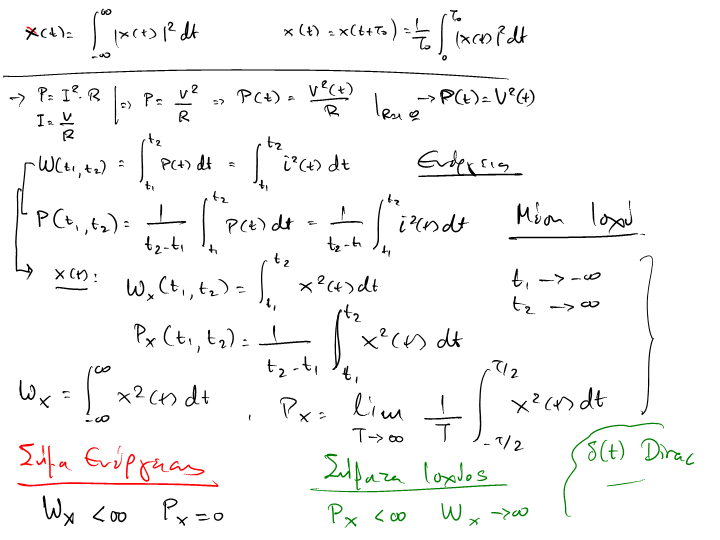 x(t) = ∫_{-∞}^{∞} |x(t)|² dt    x(t) = x(t+τ₀) = 1/τ₀ ∫_0^{τ₀} |x(t)|² dt
→ P = I²·R ⇒ P = V²/R ⇒ P(t) = V²(t)/R |_{R=1Ω} → P(t) = V²(t)
I = V/R
W(t₁,t₂) = ∫_{t₁}^{t₂} P(t) dt = ∫_{t₁}^{t₂} i²(t) dt    Ενέργεια
P(t₁,t₂) = 1/(t₂-t₁) ∫_{t₁}^{t₂} P(t) dt = 1/(t₂-t₁) ∫_{t₁}^{t₂} i²(t) dt    Μέση Ισχύ
x(t): W_x(t₁,t₂) = ∫_{t₁}^{t₂} x²(t) dt    t₁ → -∞
t₂ → ∞
P_x(t₁,t₂) = 1/(t₂-t₁) ∫_{t₁}^{t₂} x²(t) dt
W_x = ∫_{-∞}^{∞} x²(t) dt , P_x = lim_{T→∞} 1/T ∫_{-τ/2}^{τ/2} x²(t) dt
Σήμα Ενέργειας    Σήματα Ισχύος    δ(t) Dirac
W_x < ∞  P_x = 0    P_x < ∞  W_x → ∞